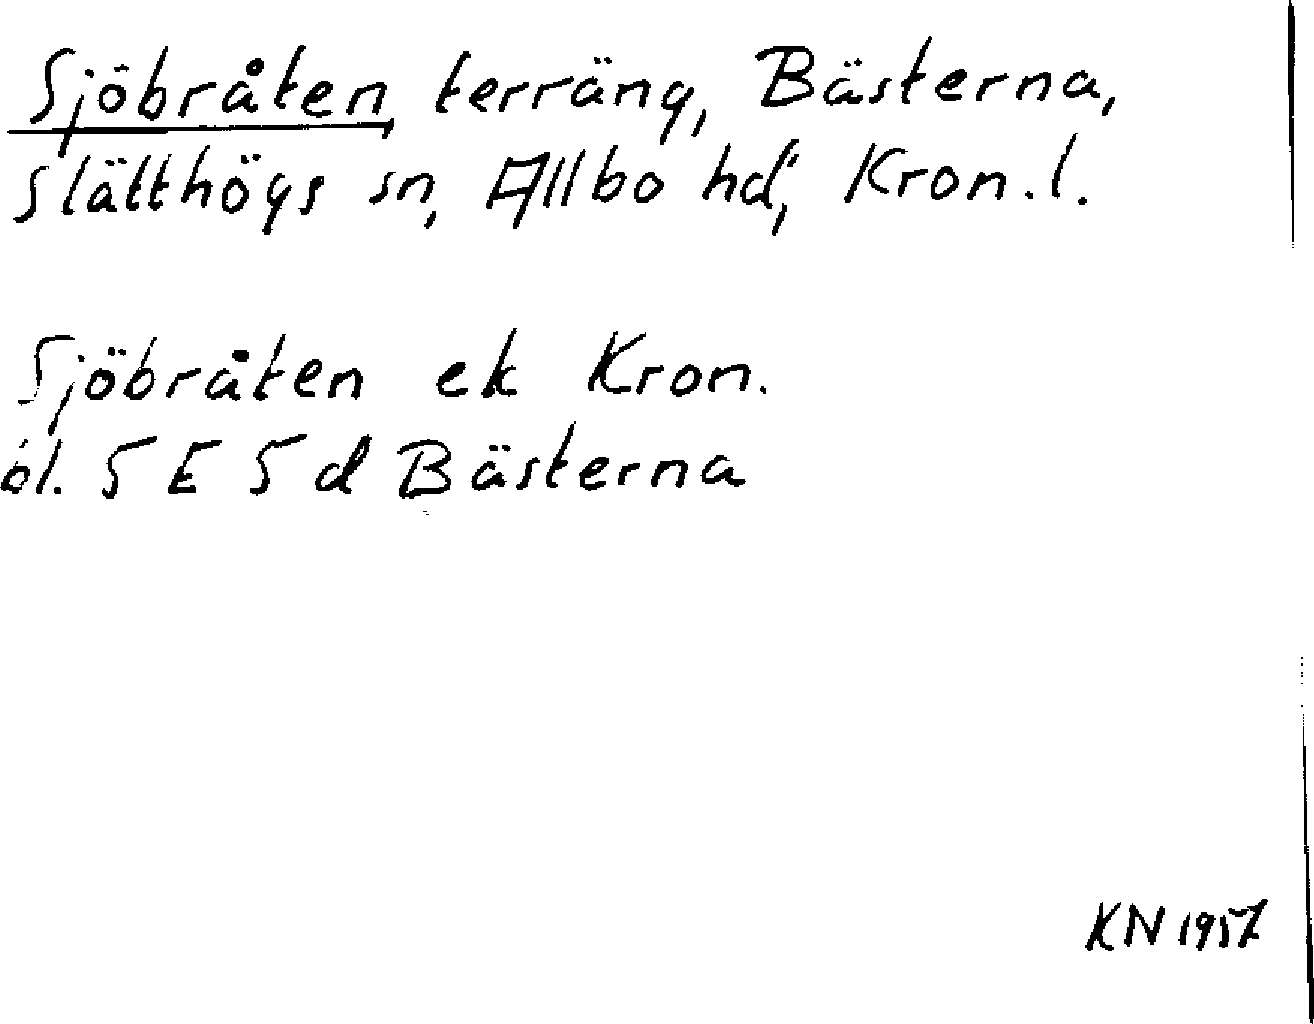 Sjöbråten, terräng, Bästerna,
Slätthögs sn, Allbo hd, Kron. l.
Sjöbråten ek Kron.
bl. 5 E 5 d Bästerna
KN 1957